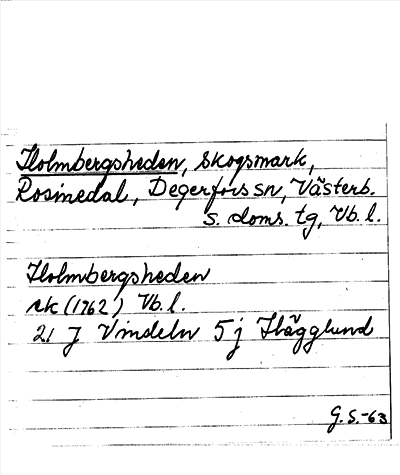 Holmbergsheden, skogsmark,
Rosinedal, Degerfors sn, Västerb.
s. doms. tg, Vb. l.
Holmbergsheden
rk (1962) Vb. l.
21 J Vindeln 5 j Hägglund
G. S. -63